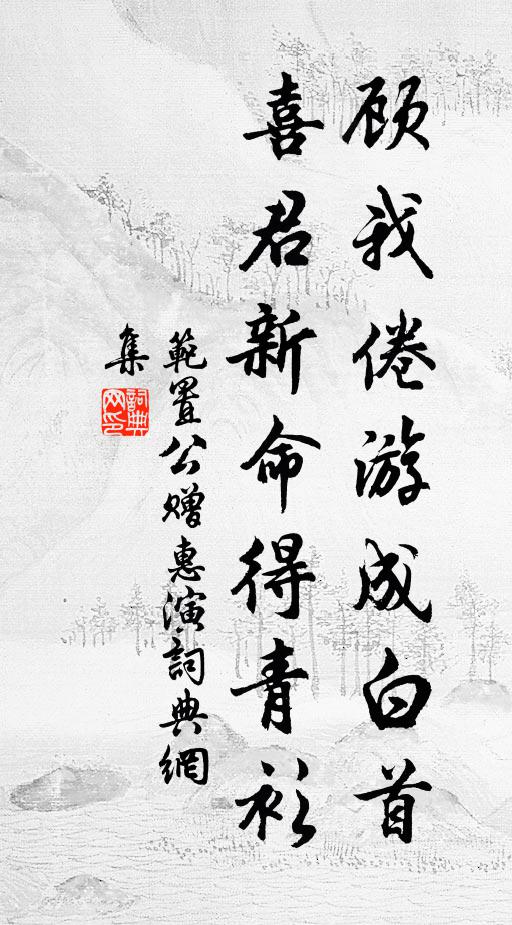 顾我倦游成白首
喜君新命得青衫
範置公赠惠演詞典網
集
詞典
网印